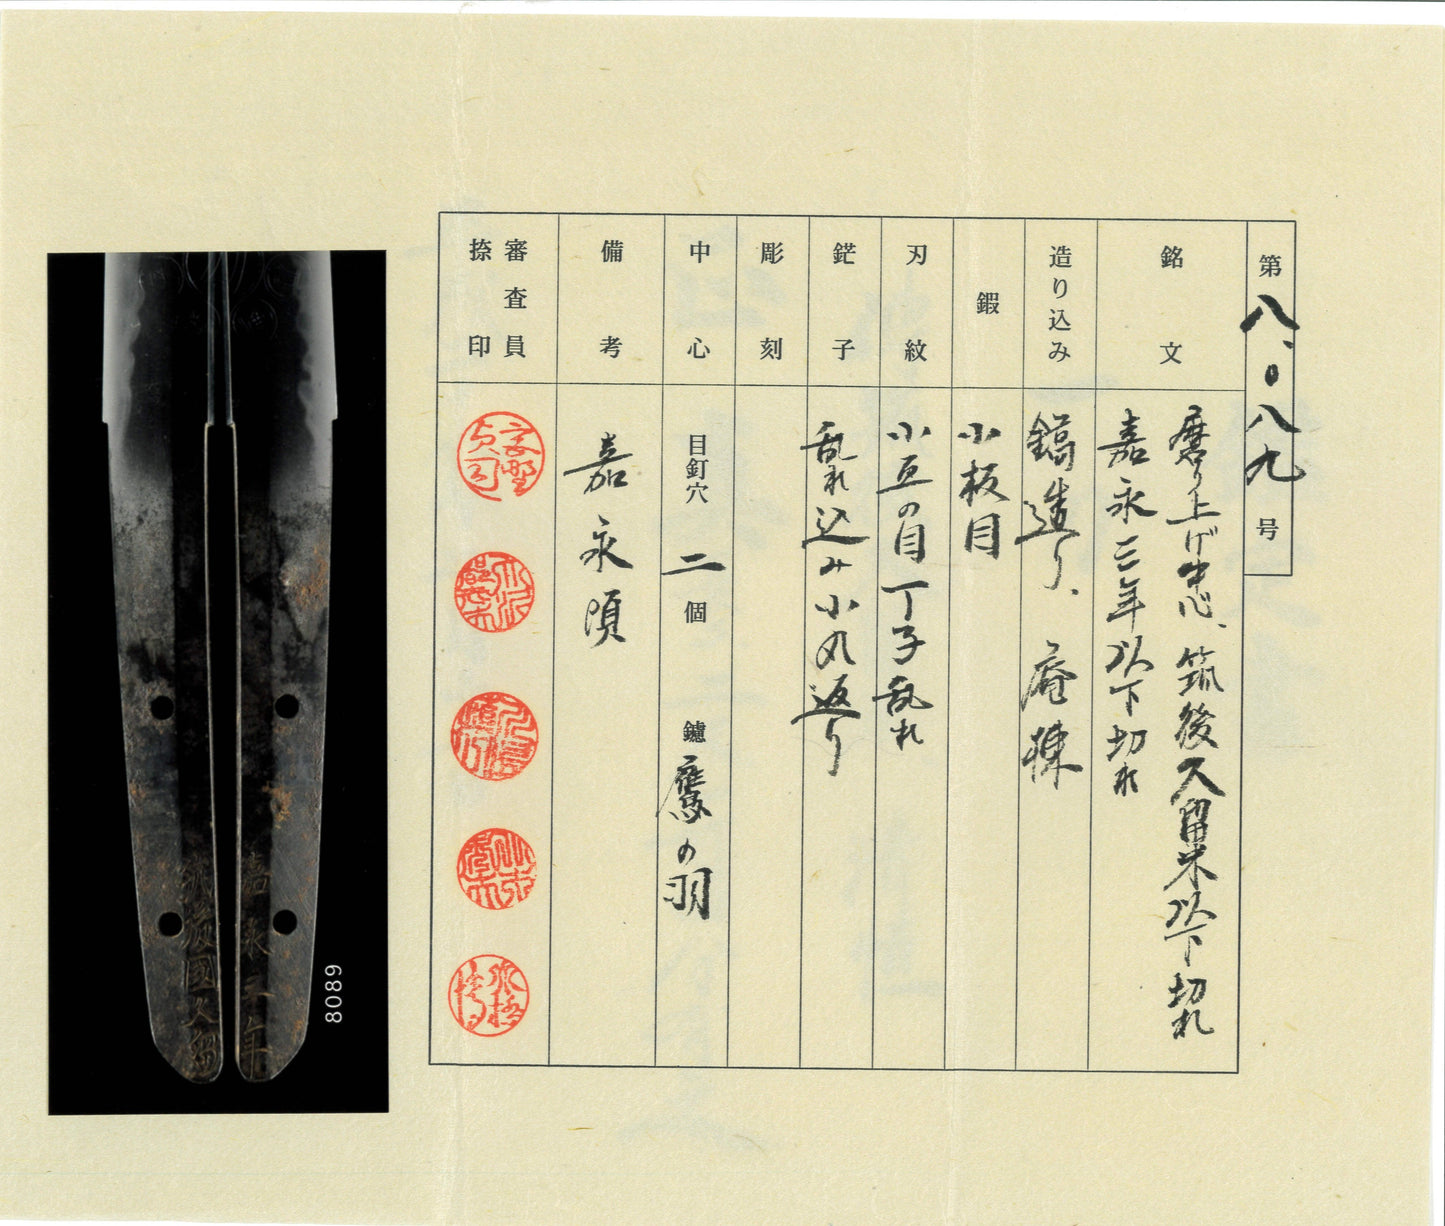 第八、〇八九号
銘文
磨り上げ中心、筑後久留米以下切れ
嘉永三年以下切れ
造り込み
鎬造り、庵棟
鍜
小板目
刃紋
小互の目丁子乱れ
鋩子
乱れ込み小丸返り
彫刻
中心
目釘穴 二 個 鑢 鷹の羽
備考
嘉永頃
審査員
捺印
8089
嘉永三年
筑後國久留